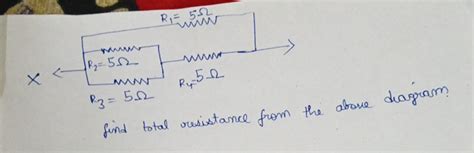 R₁= 5Ω
R₂=5Ω
X
R₄=5Ω
R₃ = 5Ω
find total resistance from the above diagram?